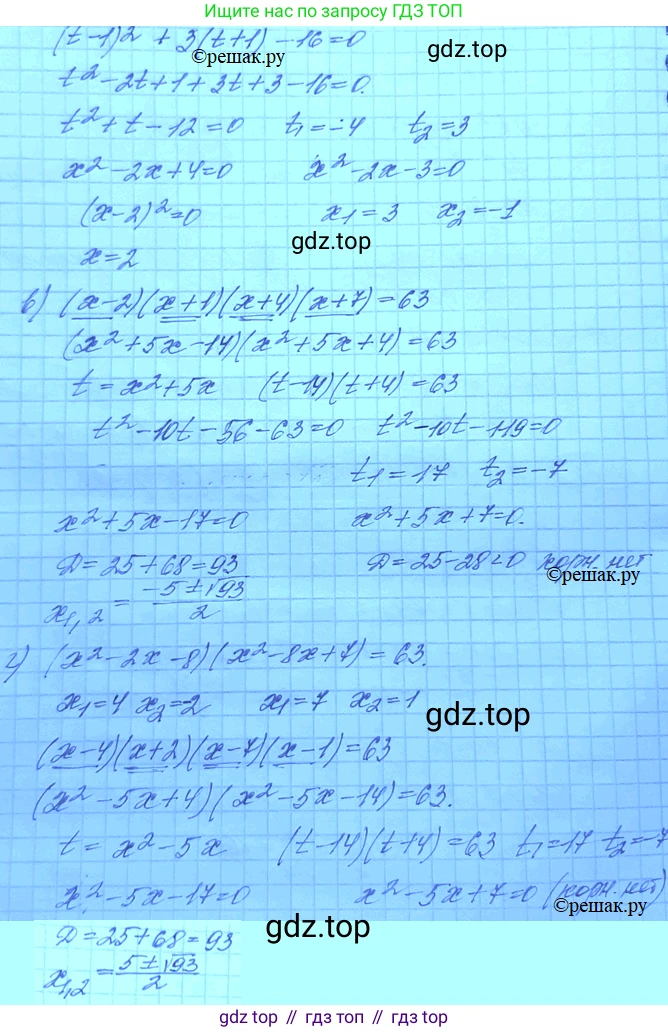 Ищите нас по запросу ГДЗ ТОП
(t-1)² + 3(t+1) - 16 = 0
©решак.ру
gdz.top
t² - 2t + 1 + 3t + 3 - 16 = 0.
t² + t - 12 = 0 t₁ = -4 t₂ = 3
x² - 2x + 4 = 0 x² - 2x - 3 = 0
(x-2)² = 0 x₁ = 3 x₂ = -1
gdz.top
x = 2
в) (x-2)(x+1)(x+4)(x+7) = 63
(x² + 5x - 14)(x² + 5x + 4) = 63
t = x² + 5x (t-14)(t+4) = 63
t² - 10t - 56 - 63 = 0 t² - 10t - 119 = 0
t₁ = 17 t₂ = -7
x² + 5x - 17 = 0 x² + 5x + 7 = 0.
D = 25 + 68 = 93 D = 25 - 28 < 0 корн. нет
©решак.ру
x₁,₂ = (-5 ± √93)/2
г) (x² - 2x - 8)(x² - 8x + 7) = 63.
x₁ = 4 x₂ = 2 x₁ = 7 x₂ = 1
gdz.top
(x-4)(x+2)(x-7)(x-1) = 63
(x² - 5x + 4)(x² - 5x - 14) = 63.
t = x² - 5x (t-14)(t+4) = 63 t₁ = 17 t₂ = -7
x² - 5x - 17 = 0 x² - 5x + 7 = 0 (корн. нет)
©решак.ру
gdz.top
D = 25 + 68 = 93
x₁,₂ = (5 ± √93)/2
gdz.top // гдз топ // гдз.топ